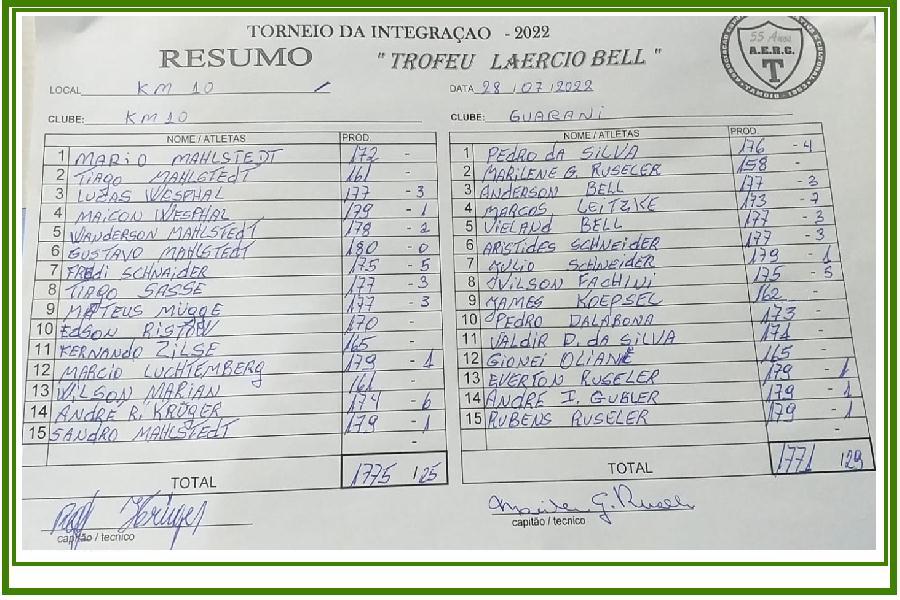 TORNEIO DA INTEGRAÇAO - 2022
RESUMO " TROFEU LAERCIO BELL "
55 Anos
A.E.R.C.
T
LOCAL KM 10 DATA 28/07/2022
CLUBE: KM 10
NOME / ATLETAS PROD.
1 MARIO MAHLSTEDT 172 -
2 TIAGO MAHLSTEDT 161 -
3 LUCAS WESPHAL 177 - 3
4 MAICON WESPHAL 179 - 1
5 WANDERSON MAHLSTEDT 178 - 2
6 GUSTAVO MAHLSTEDT 180 - 0
7 FREDI SCHNAIDER 175 - 5
8 TIAGO SASSE 177 - 3
9 MATEUS MÜGGE 177 - 3
10 EDSON 170 -
11 FERNANDO ZILSE 165 -
12 MARCIO LUCHTEMBERG 179 - 1
13 WILSON MARIAN 161 -
14 ANDRÉ R. KRÜGER 174 - 6
15 SANDRO MAHLSTEDT 179 - 1
-
TOTAL 1775 125
capitão / tecnico
CLUBE: GUARANI
NOME / ATLETAS PROD.
1 PEDRO DA SILVA 176 - 4
2 MARILENE G. RUSELER 158 -
3 ANDERSON BELL 177 - 3
4 MARCOS LEITZKE 173 - 7
5 VIELAND BELL 177 - 3
6 ARISTIDES SCHNEIDER 177 - 3
7 JULIO SCHNEIDER 179 - 1
8 VILSON FACHINI 175 - 5
9 JAMES KOEPSEL 162 -
10 PEDRO DALABONA 173 -
11 VALDIR D. DA SILVA 174 -
12 GIONEI OLIANI 165 -
13 EVERTON RUSELER 179 - 1
14 ANDRÉ I. GUBLER 179 - 1
15 RUBENS RUSELER 179 - 1
-
TOTAL 1771 129
capitão / tecnico